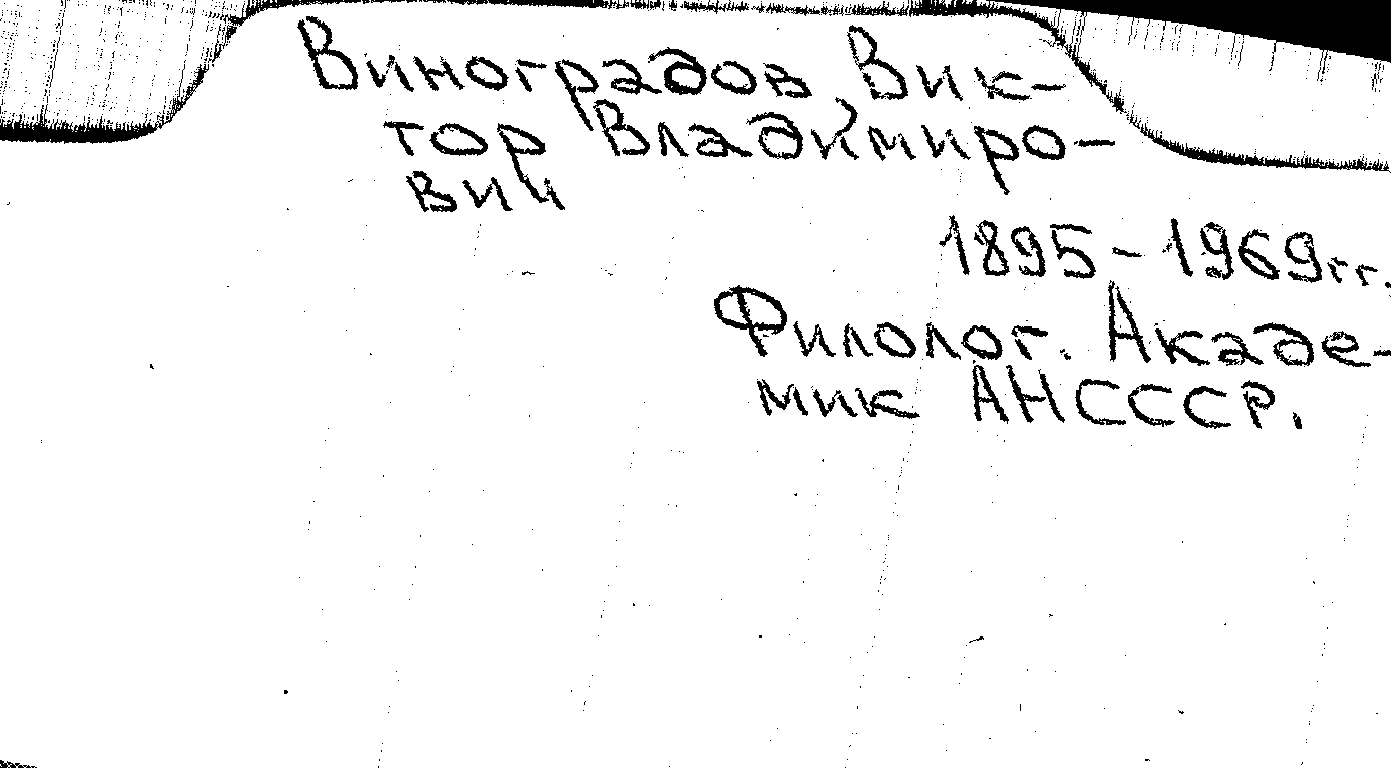 Виноградов, Вик-
тор Владимиро-
вич
1895-1969гг.
Филолог. Акаде-
мик АНСССР.